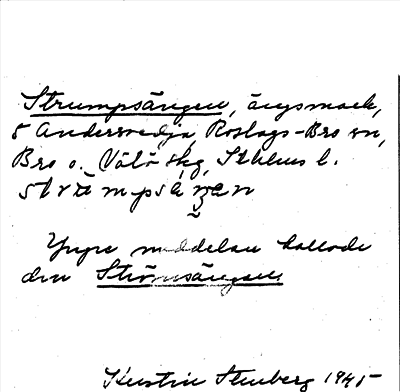 Strumpsängen, ängsmark,
S Andersvedja, Roslags-Bro sn,
Bro o. Vätö skg, Sthlms l.
strùmpsáŋen
Yngre meddelare kallade
den Strömsängen
Kerstin Stenberg 1945